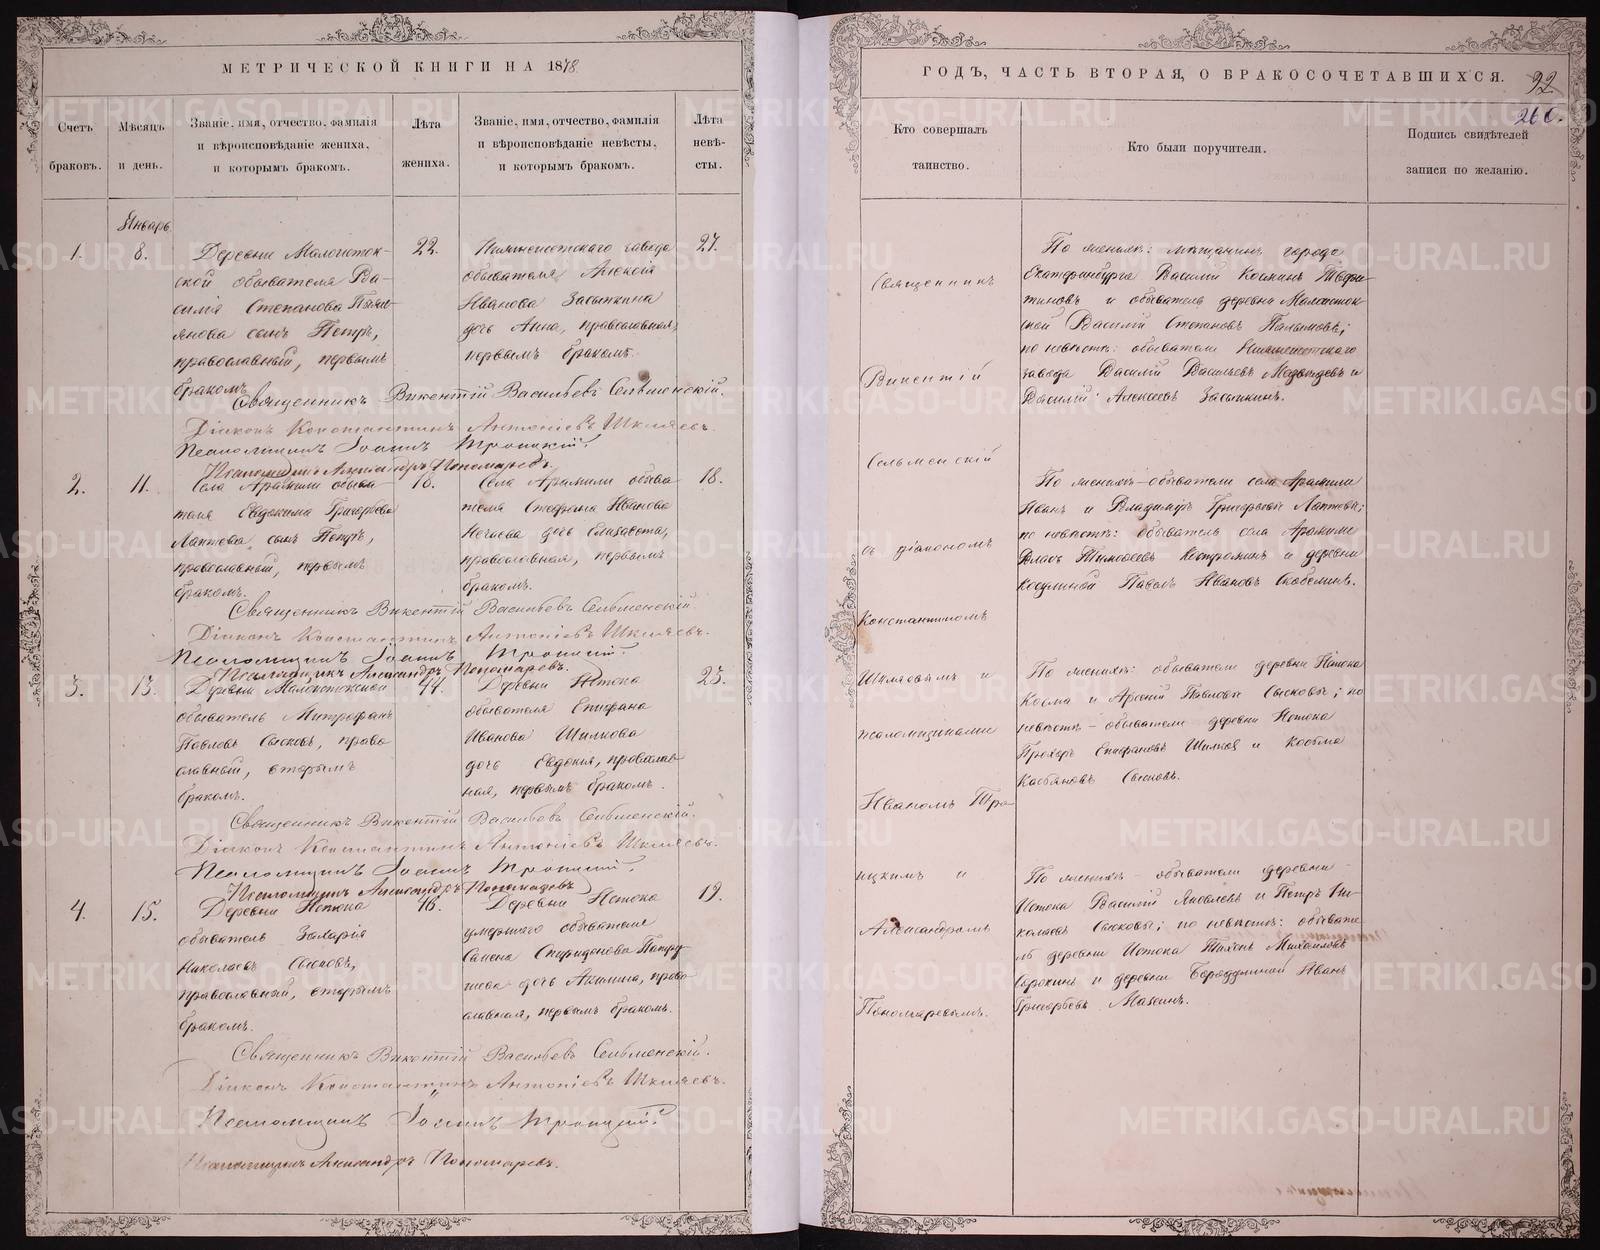 МЕТРИЧЕСКОЙ КНИГИ НА 1878
Счетъ браковъ.
Мѣсяцъ и день.
Званіе, имя, отчество, фамилія и вѣроисповѣданіе жениха, и которымъ бракомъ.
Лѣта жениха.
Званіе, имя, отчество, фамилія и вѣроисповѣданіе невѣсты, и которымъ бракомъ.
Лѣта невѣ-сты.
Январь
1.
8.
Деревни Малоисток-
ской обывателя Ва-
силія Степанова
сынъ Петръ,
православный, первымъ
бракомъ.
22.
Нижнеисетскаго завода
обывателя Алексѣя
Иванова Засыпкина
дочь Анна, православная,
первымъ бракомъ.
27.
Священникъ Викентій Васильевъ Сельменскій.
Діаконъ Константинъ Антоніевъ Шкляевъ.
Псаломщикъ Іоаннъ Троицкій.
Псаломщикъ Александръ Пономаревъ.
2.
11.
Села Арамили обыва-
теля Евдокима Григорьева
Лаптева сынъ Петръ,
православный, первымъ
бракомъ.
18.
Села Арамили обыва
теля Стефана Иванова
дочь Елисавета,
православная, первымъ
бракомъ.
18.
Священникъ Викентій Васильевъ Сельменскій.
Діаконъ Константинъ Антоніевъ Шкляевъ.
Псаломщикъ Іоаннъ Троицкій.
Псаломщикъ Александръ Пономаревъ.
3.
13.
Деревни Малоистокской
обыватель Митрофанъ
Павловъ Сысковъ, право
славный, вторымъ
бракомъ.
44.
Деревни Истока
обывателя Епифана
Иванова Шилкова
дочь Евдокія, православ-
ная, первымъ бракомъ.
25.
Священникъ Викентій Васильевъ Сельменскій.
Діаконъ Константинъ Антоніевъ Шкляевъ.
Псаломщикъ Іоаннъ Троицкій.
Псаломщикъ Александръ Пономаревъ
4.
15.
Деревни Истока
обыватель Захарія
Николаевъ Сысковъ,
православный, вторымъ
бракомъ.
Деревни Истока
умершаго обывателя
Семена Спиридонова
дочь Акилина, право-
славная, первымъ бракомъ.
19.
Священникъ Викентій Васильевъ Сельменскій.
Діаконъ Константинъ Антоніевъ Шкляевъ.
Псаломщикъ Іоаннъ Троицкій.
Псаломщикъ Александръ Пономаревъ.
ГОДЪ, ЧАСТЬ ВТОРАЯ, О БРАКОСОЧЕТАВШИХСЯ.
92
266.
Кто совершалъ таинство.
Кто были поручители.
Подпись свидѣтелей записи по желанію.
Священникъ
Викентій
Сельменскій
съ діакономъ
Константиномъ
Шкляевымъ и
псаломщиками
Иваномъ Тро-
ицкимъ и
Александромъ
Пономаревымъ.
По женихѣ: мѣщанинъ города
Екатеринбурга Василій Козминъ
и обыватель деревни Малоисток-
ской Василій Степановъ
по невѣстѣ: обыватели Нижнеисетскаго
завода Василій Васильевъ Медвѣдевъ и
Василій Алексѣевъ Засыпкинъ.
По женихѣ - обыватели села Арамили
Иванъ и Владимиръ Григорьевы Лаптевы;
по невѣстѣ: обыватель села Арамили
Власъ Тимофеевъ Костроминъ и деревни
Косулиной Павелъ Ивановъ
По женихѣ: обыватели деревни Истока
Косма и Арсеній Павловы Сысковы; по
невѣстѣ - обыватели деревни Истока
Прохоръ Епифановъ Шилковъ и Косьма
Касьяновъ Сысковъ.
По женихѣ - обыватели деревни
Истока Василій Яковлевъ и Петръ Ни-
колаевъ Сысковы; по невѣстѣ: обывате
ль деревни Истока Михайловъ
Сорокинъ и деревни Бородулиной Иванъ
Григорьевъ
METRIKI.GASO-URAL.RU